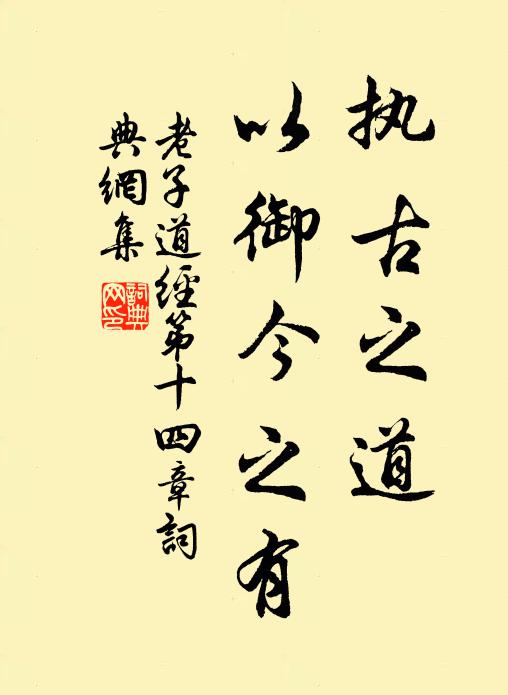 执古之道
以御今之有
老子道經第十四章詞
典網集
詞典
网印